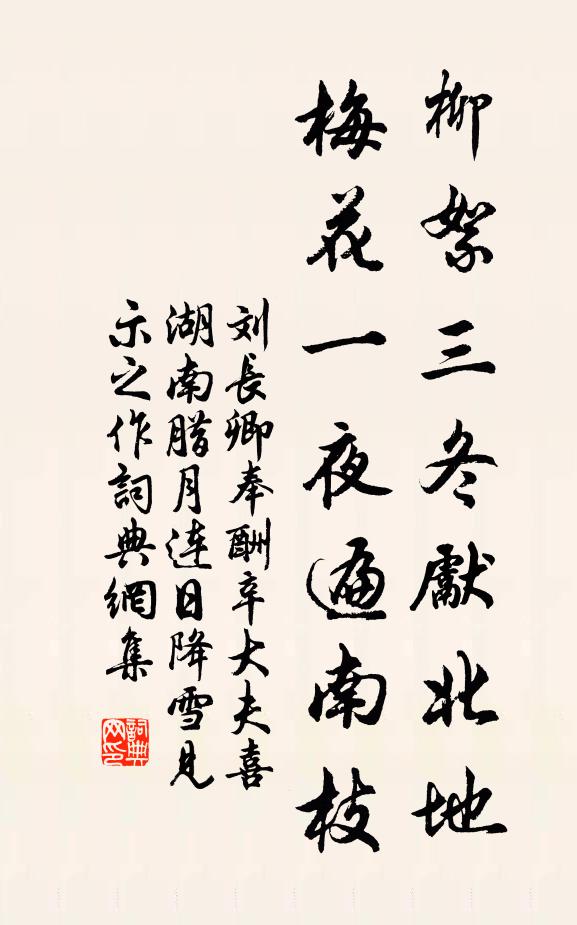 柳絮三冬獻北地
梅花一夜遍南枝
刘長卿奉酬辛大夫喜
湖南腊月连日降雪见
示之作詞典網集
詞典
网印